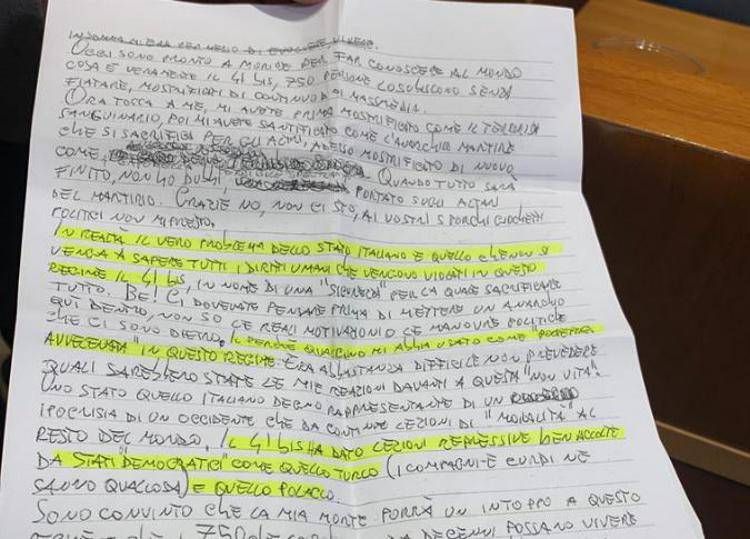 OGGI SONO PRONTO A MORIRE PER FAR CONOSCERE AL MONDO
COSA È VERAMENTE IL 41 BIS, 750 PERSONE LO SUBISCONO SENZA
FIATARE, MOSTRIFICATI DI CONTINUO DAI MASSMEDIA.
ORA TOCCA A ME, MI AVETE PRIMA MOSTRIFICATO COME IL TERRORISTA
SANGUINARIO, POI MI AVETE SANTIFICATO COME L'ANARCHICO MARTIRE
CHE SI SACRIFICA PER GLI ALTRI, ADESSO MOSTRIFICATO DI NUOVO
COME, QUANDO TUTTO SARÀ
FINITO, NON HO DUBBI PORTATO SUGLI ALTARI
DEL MARTIRIO. GRAZIE NO, NON CI STO, AI VOSTRI SPORCHI GIOCHETTI
POLITICI NON MI PRESTO.
IN REALTÀ IL VERO PROBLEMA DELLO STATO ITALIANO È QUELLO CHE NON SI
VENGA A SAPERE TUTTI I DIRITTI UMANI CHE VENGONO VIOLATI IN QUESTO
REGIME IL 41 BIS, IN NOME DI UNA "SICUREZZA" PER LA QUALE SACRIFICARE
TUTTO. BE! CI DOVEVATE PENSARE PRIMA DI METTERE UN ANARCHICO
QUI DENTRO, NON SO LE REALI MOTIVAZIONI O LE MANOVRE POLITICHE
CHE CI SONO DIETRO. IL PERCHÈ QUALCUNO MI ABBIA USATO COME "POLPETTA
AVVELENATA" IN QUESTO REGIME. ERA ABBASTANZA DIFFICILE NON PREVEDERE
QUALI SAREBBERO STATE LE MIE REAZIONI DAVANTI A QUESTA "NON VITA"
UNO STATO QUELLO ITALIANO DEGNO RAPPRESENTANTE DI UN
IPOCRISIA DI UN OCCIDENTE CHE DA CONTINUE LEZIONI DI "MORALITÀ" AL
RESTO DEL MONDO. IL 41 BIS HA DATO LEZIONI REPRESSIVE BEN ACCOLTE
DA STATI "DEMOCRATICI" COME QUELLO TURCO (I COMPAGNI-E CURDI NE
SANNO QUALCOSA) E QUELLO POLACCO.
SONO CONVINTO CHE LA MIA MORTE PORRÀ UN INTOPPO A QUESTO
REGIME E CHE I 750 CHE DA DECENNI POSSANO VIVERE